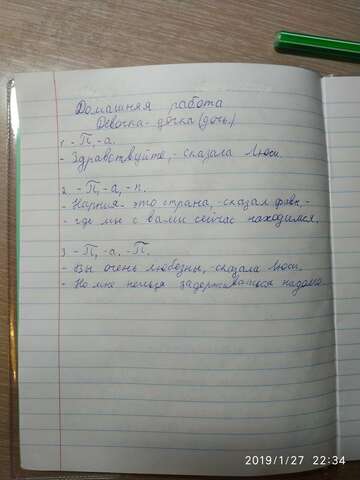 Домашняя работа
Девочка - дочка (дочь)
1 - П, - а.
- Здравствуйте, - сказала Люси.
2. - П, - а, - п.
- Нарния - это страна, - сказал фавн, -
- где мы с вами сейчас находимся.
3 - П, - а. - П.
- Вы очень любезны, - сказала Люси.
- Но мне нельзя задерживаться надолго.
2019/1/27 22:34